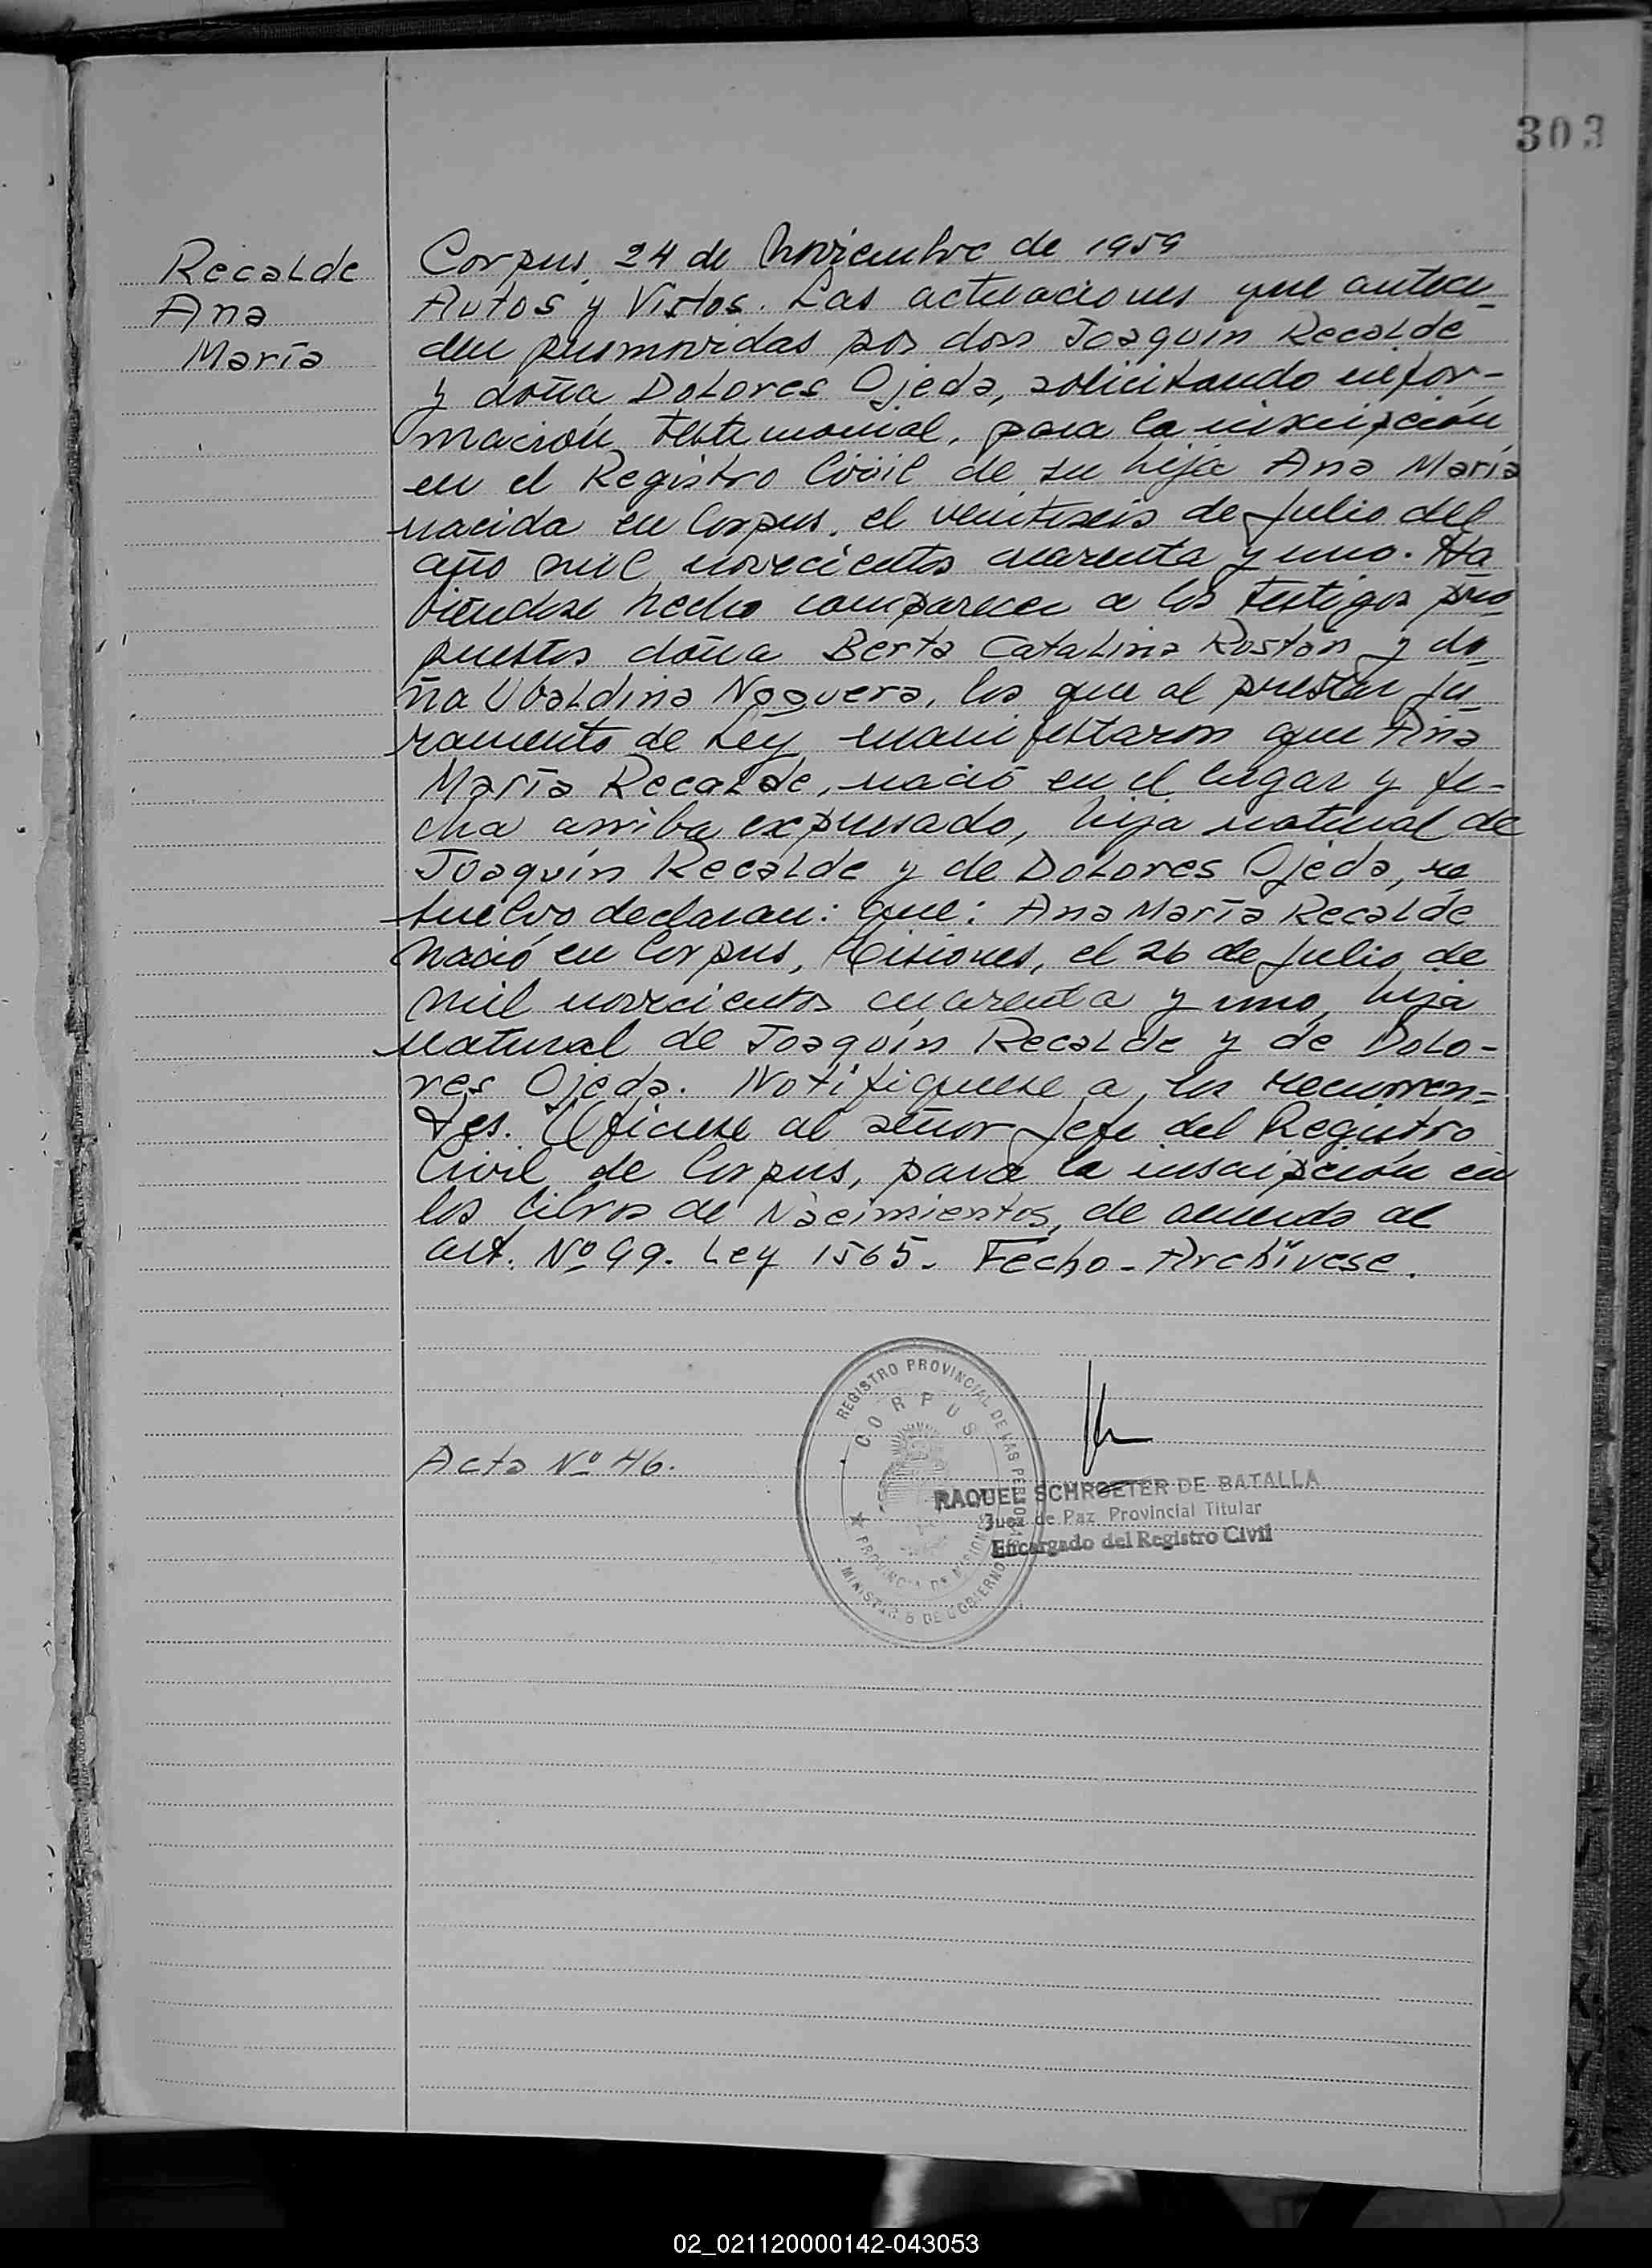 303
Recalde
Ana
María
Corpus, 24 de Noviembre de 1959
Autos y Vistos. Las actuaciones que antece-
den promovidas por don Joaquín Recalde
y doña Dolores Ojeda, solicitando infor-
mación testimonial, para la inscripción
en el Registro Civil de su hija Ana María
nacida en Corpus, el veintiseis de Julio del
año mil novecientos cuarenta y uno. Ha
biendose hecho comparecer a los testigos pro
puestos doña Berta Catalina Rostan y do
ña Ubaldina Noguera, los que al prestar ju
ramento de Ley manifestaron que Ana
María Recalde, nació en el lugar y fe-
cha arriba expresado, hija natural de
Joaquín Recalde y de Dolores Ojeda, re
suelvo declarar: que: Ana María Recalde
nació en Corpus, Misiones, el 26 de Julio de
mil novecientos cuarenta y uno, hija
natural de Joaquín Recalde y de Dolo-
res Ojeda. Notifíquese a los recurren-
tes. Ofíciese al señor Jefe del Registro
Civil de Corpus, para la inscripción en
los Libros de Nacimientos, de acuerdo al
art. Nº 99. Ley 1565. Fecho-Archívese.
Acta Nº 46.
REGISTRO PROVINCIAL DE LAS PERSONAS
CORPUS
PROVINCIA DE MISIONES
MINISTERIO DE GOBIERNO
RAQUEL SCHROETER DE BATALLA
Juez de Paz Provincial Titular
Encargado del Registro Civil
02_021120000142-043053